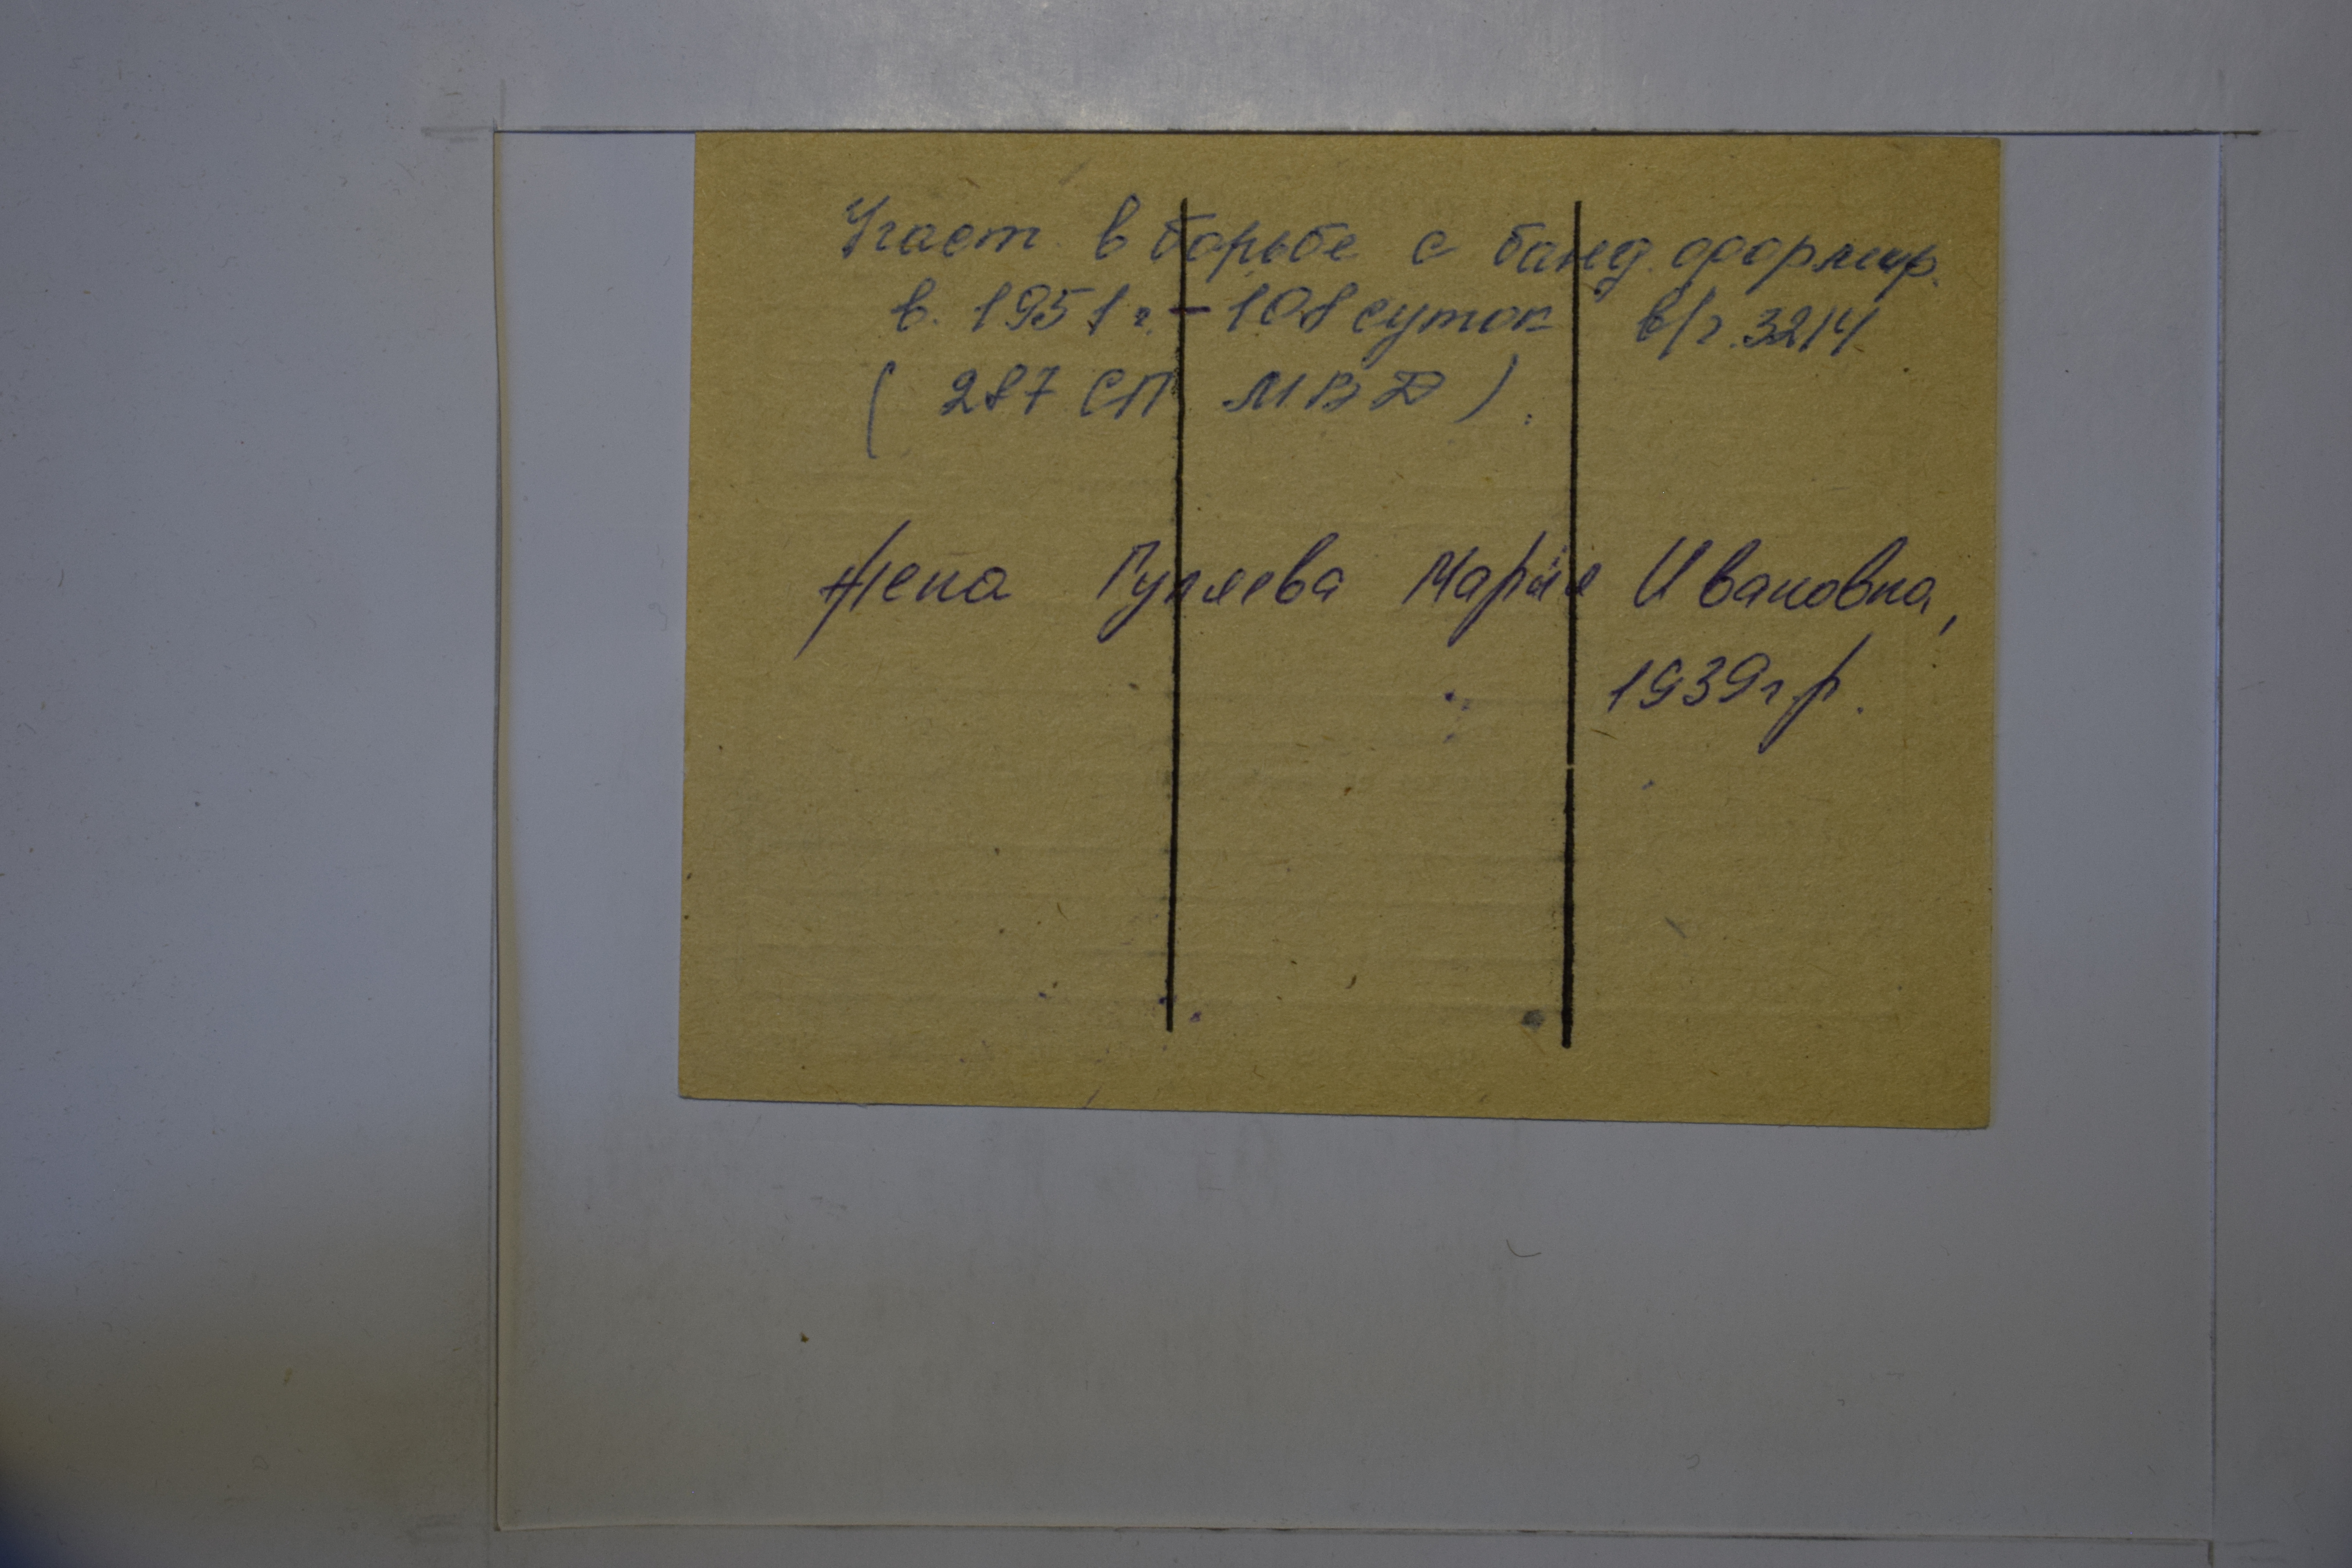 Участ. в борьбе с банд. формир.
в. 1951 г. - 108 суток в/ч. 3214
( 287 СП МВД ).
Жена Гуляева Мария Ивановна,
1939 г р.